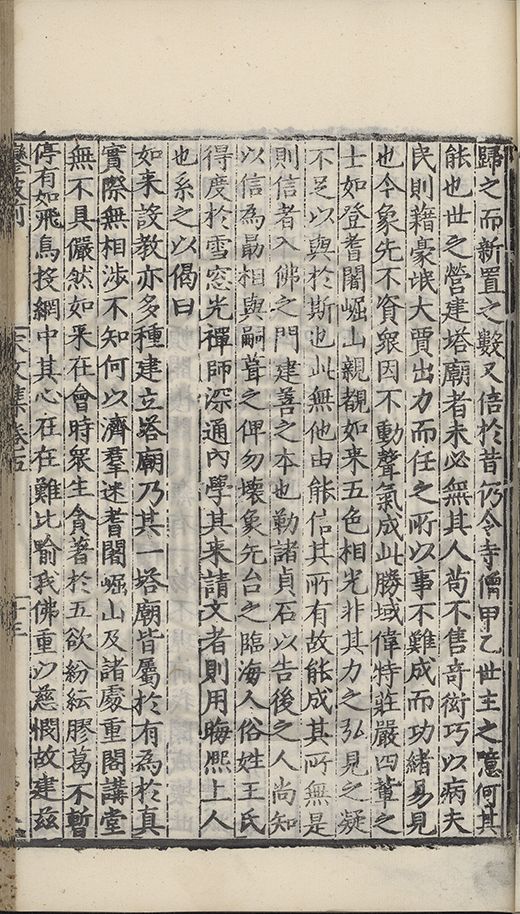 歸之而新置之數又倍於昔仍令寺僧甲乙世主之噫何其
能也世之營建塔廟者未必無其人苟不售竒衒巧以病夫
民則藉豪氓大賈出力而任之所以事不難成而功緒易見
也今象先不資衆因不動聲氣成此勝域偉特莊嚴四輩之
士如登耆闍崛山親覩如来五色相光非其力之弘見之凝
不足以與於斯也此無他由能信其所有故能成其所無是
則信者入佛之門建善之本也勒諸貞石以告後之人尚知
以信為最相與嗣葺之俾勿壞象先台之臨海人俗姓王氏
得度於雪窓光禪師深通內學其来請文者則用晦熈上人
也系之以偈曰
如来設教亦多種建立塔廟乃其一塔廟皆屬於有為於真
實際無相涉不知何以濟羣迷耆闍崛山及諸處重閣講堂
無不具儼然如来在會時衆生貪著於五欲紛紜膠葛不暫
停有如飛鳥投網中其心在在難比喻我佛重以慈憫故建兹
文集卷五
十三